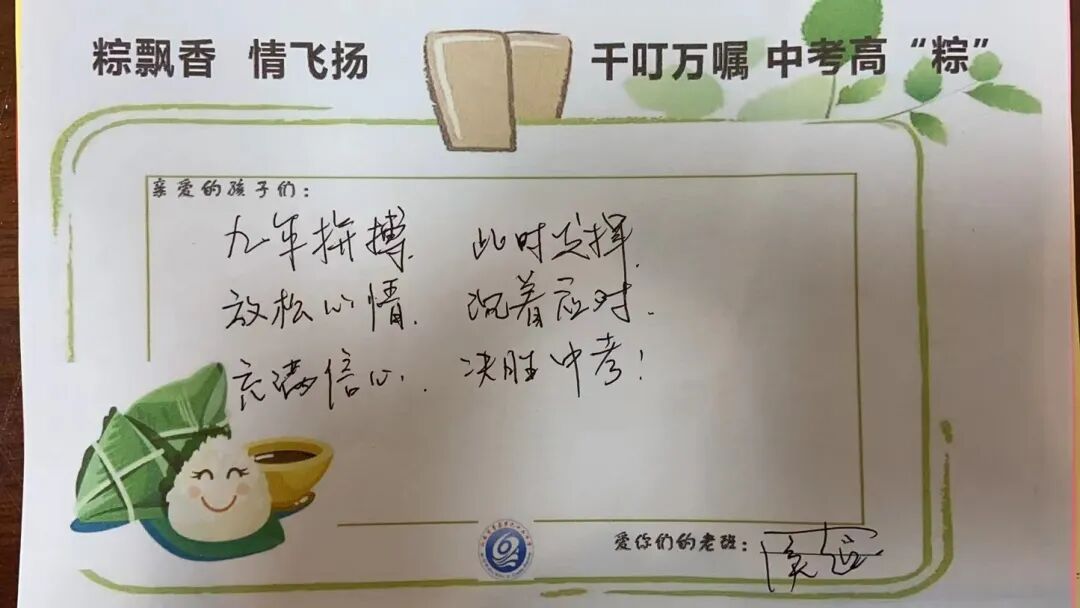 粽飘香 情飞扬 千叮万嘱 中考高“粽”
亲爱的孩子们：
九年拼搏. 此时发挥.
放松心情. 沉着应对.
充满信心. 决胜中考！
爱你们的老班：